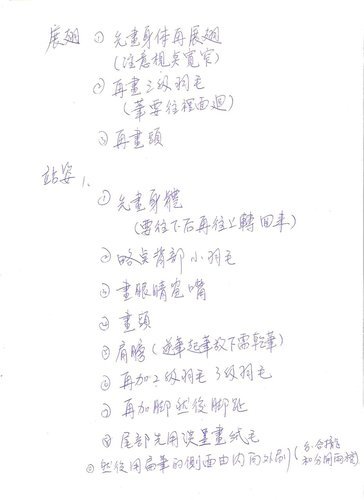 展翅 ① 先畫身体再展翅
(注意視点寬窄)
② 再畫三级羽毛
(筆要往裡面迴)
③ 再畫頭
站姿 1.
① 先畫身體
(要往下后再往上轉回來)
② 略点背部小羽毛
③ 畫眼睛岂嘴
④ 畫頭
⑤ 肩膀 (逆筆起筆放下需乾筆)
⑥ 再加2级羽毛 3级羽毛
⑦ 再加脚然後脚趾
⑧ 尾部先用淡墨畫絨毛
⑨ 然後用扁筆的側面由内向外刷 (和分開兩種)